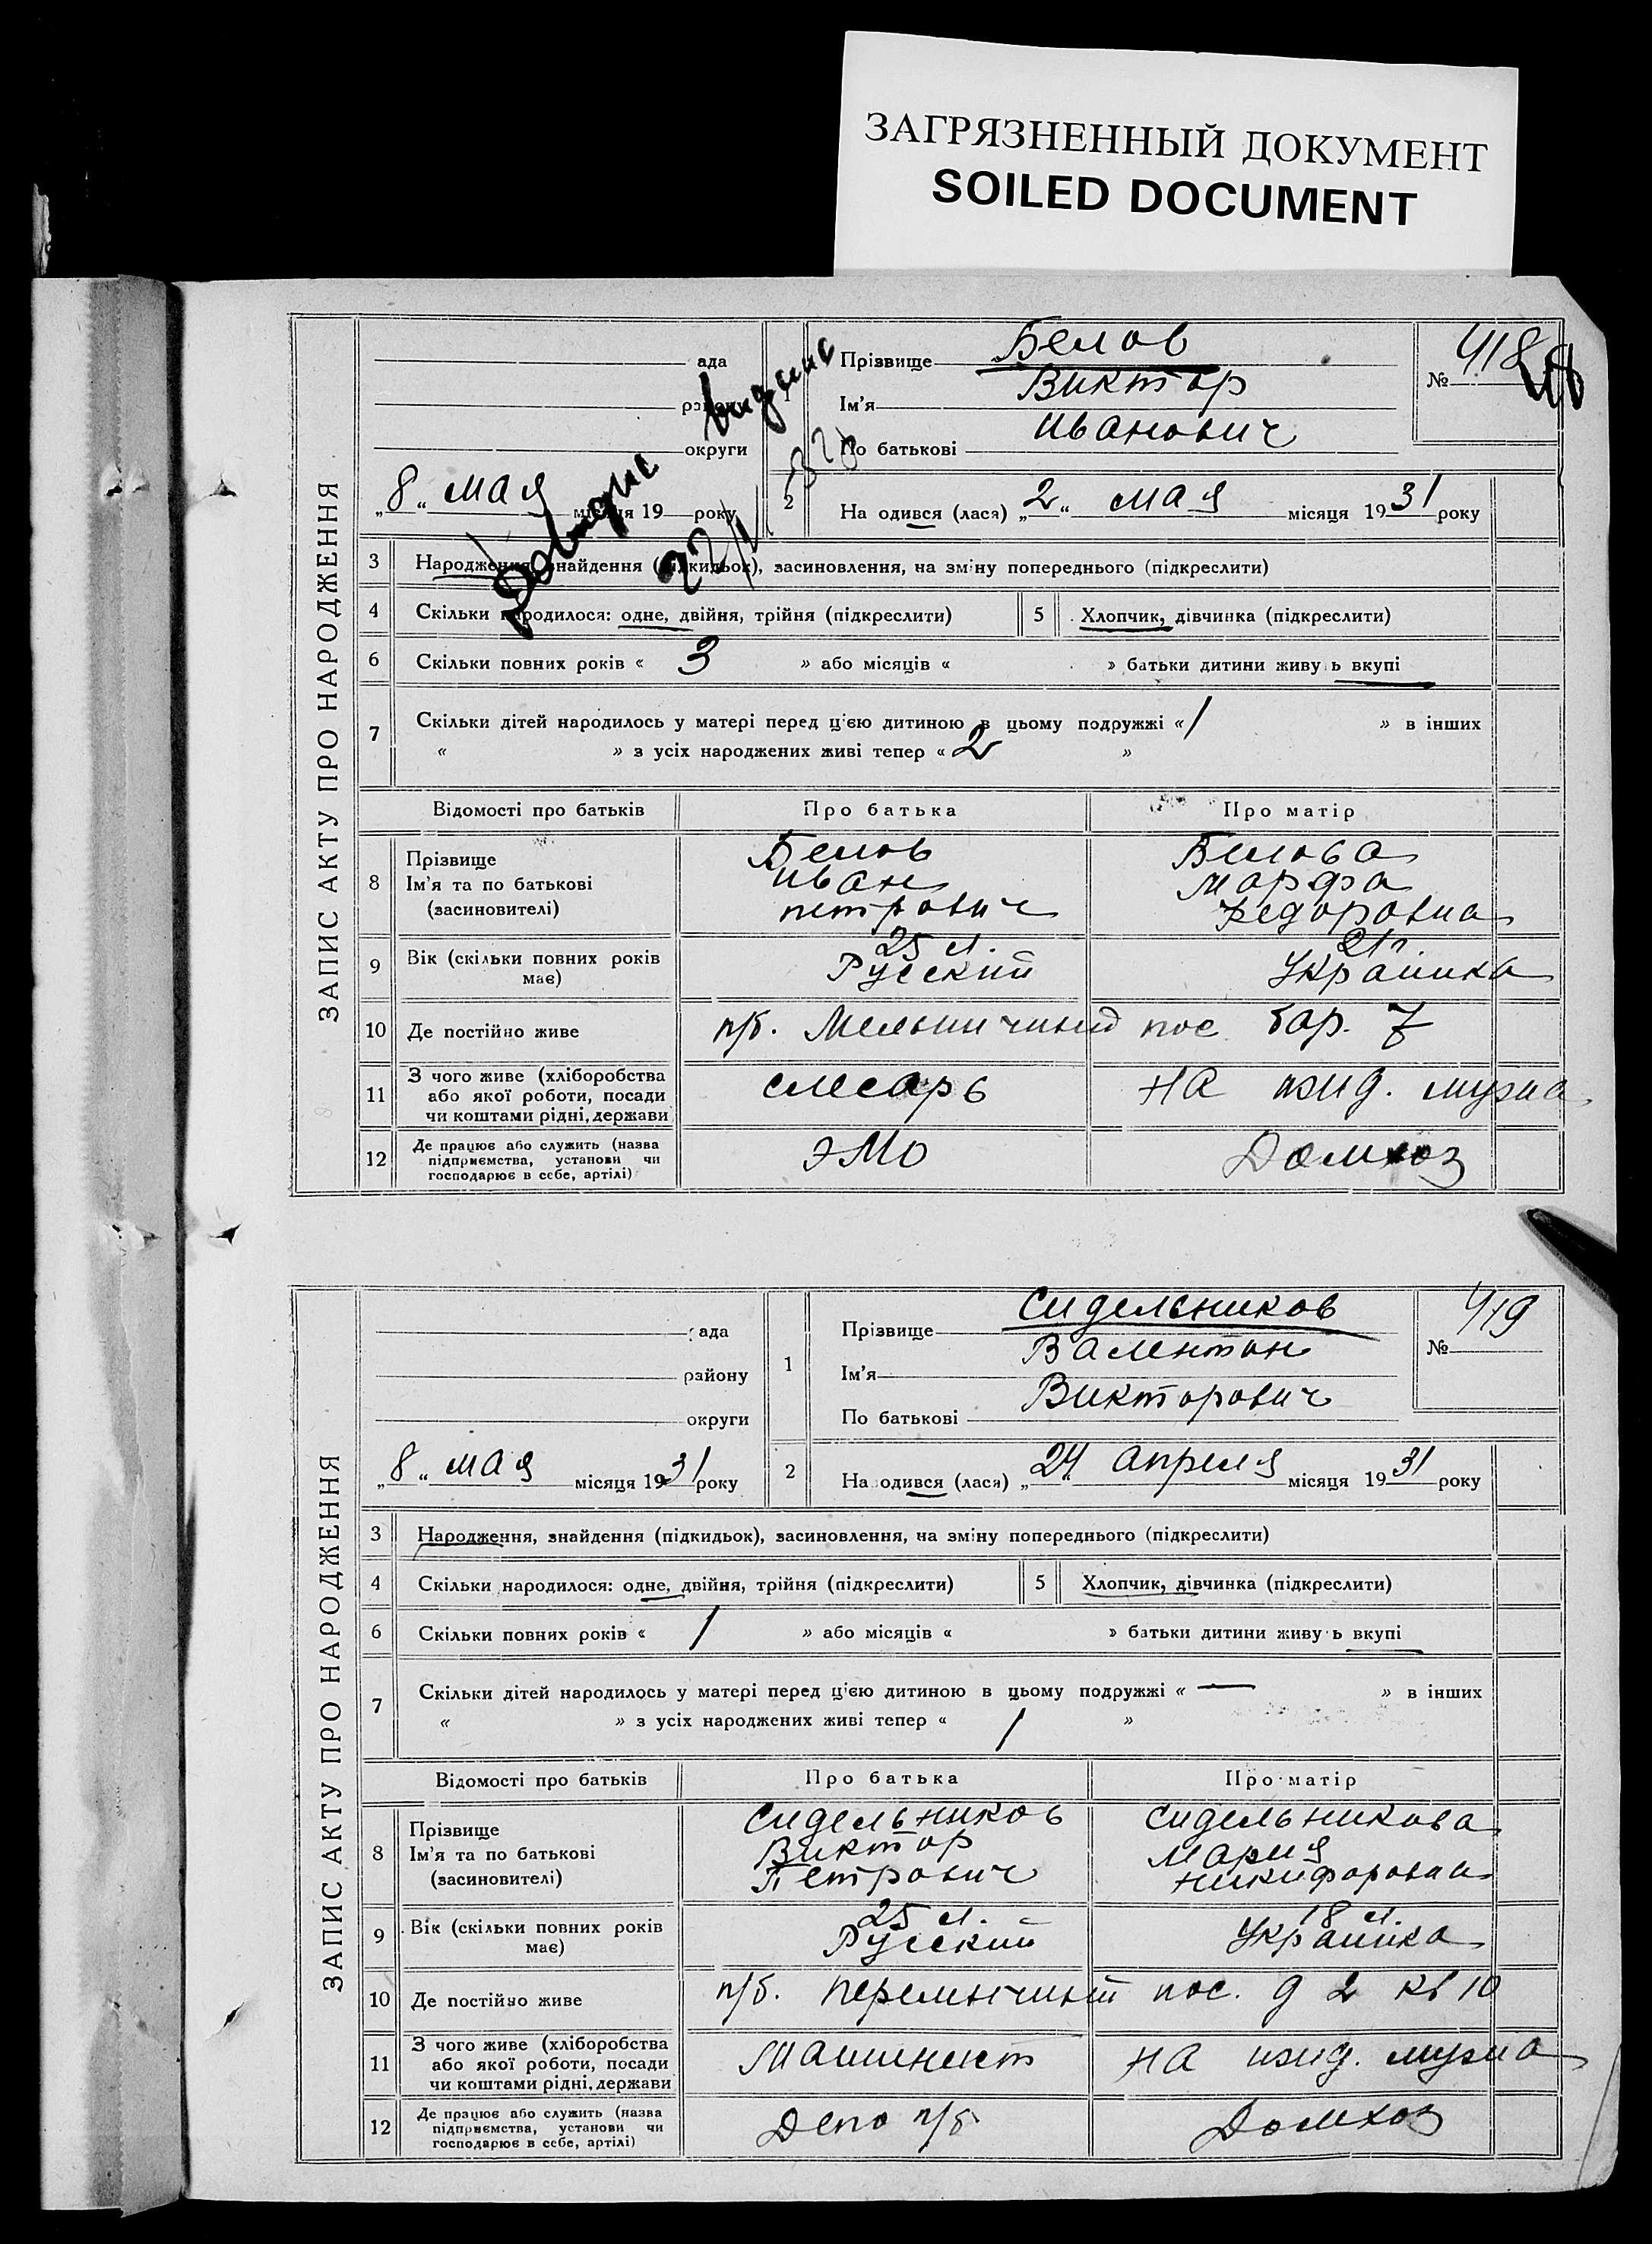 ЗАГРЯЗНЕННЫЙ ДОКУМЕНТ
SOILED DOCUMENT
ЗАПИС АКТУ ПРО НАРОДЖЕННЯ
ада
району
округи
„8“ мая місяця 19 року
Прізвище Белов
Ім'я Виктор
По батькові Иванович
№ 418
2 На одився (лася) „2“ мая місяця 1931 року
3 Народження, знайдення (підкидьок), засиновлення, на зміну попереднього (підкреслити)
4 Скільки народилося: одне, двійня, трійня (підкреслити) 5 Хлопчик, дівчинка (підкреслити)
6 Скільки повних років « 3 » або місяців « » батьки дитини живу ь вкупі
7 Скільки дітей народилось у матері перед цією дитиною в цьому подружжі « 1 » в інших
« » з усіх народжених живі тепер « 2 »
Відомості про батьків Про батька Про матір
8 Прізвище Белов Белова
Ім'я та по батькові Иван Марфа
(засиновителі) Петрович Федоровна
25 л. 21
9 Вік (скільки повних років має) Русский Украинка
10 Де постійно живе п/б. пос бар. 7
11 З чого живе (хліборобства або якої роботи, посади чи коштами рідні, держави слесарь на ижд. мужа
12 Де працює або служить (назва підприємства, установи чи господарює в себе, артілі) ЭМО Домхоз
ЗАПИС АКТУ ПРО НАРОДЖЕННЯ
ада
району
округи
„8“ мая місяця 1931 року
1 Прізвище Сидельников
Ім'я Валентин
По батькові Викторович
№ 419
2 На одився (лася) „24“ апреля місяця 1931 року
3 Народження, знайдення (підкидьок), засиновлення, на зміну попереднього (підкреслити)
4 Скільки народилося: одне, двійня, трійня (підкреслити) 5 Хлопчик, дівчинка (підкреслити)
6 Скільки повних років « 1 » або місяців « » батьки дитини живу ь вкупі
7 Скільки дітей народилось у матері перед цією дитиною в цьому подружжі « — » в інших
« » з усіх народжених живі тепер « 1 »
Відомості про батьків Про батька Про матір
8 Прізвище Сидельников Сидельникова
Ім'я та по батькові Виктор Мария
(засиновителі) Петрович Никифоровна
25 л. 18 л.
9 Вік (скільки повних років має) Русский Украинка
10 Де постійно живе п/б. пос. д 2 кв 10
11 З чого живе (хліборобства або якої роботи, посади чи коштами рідні, держави Машинист на ижд. мужа
12 Де працює або служить (назва підприємства, установи чи господарює в себе, артілі) Депо п/б Домхоз